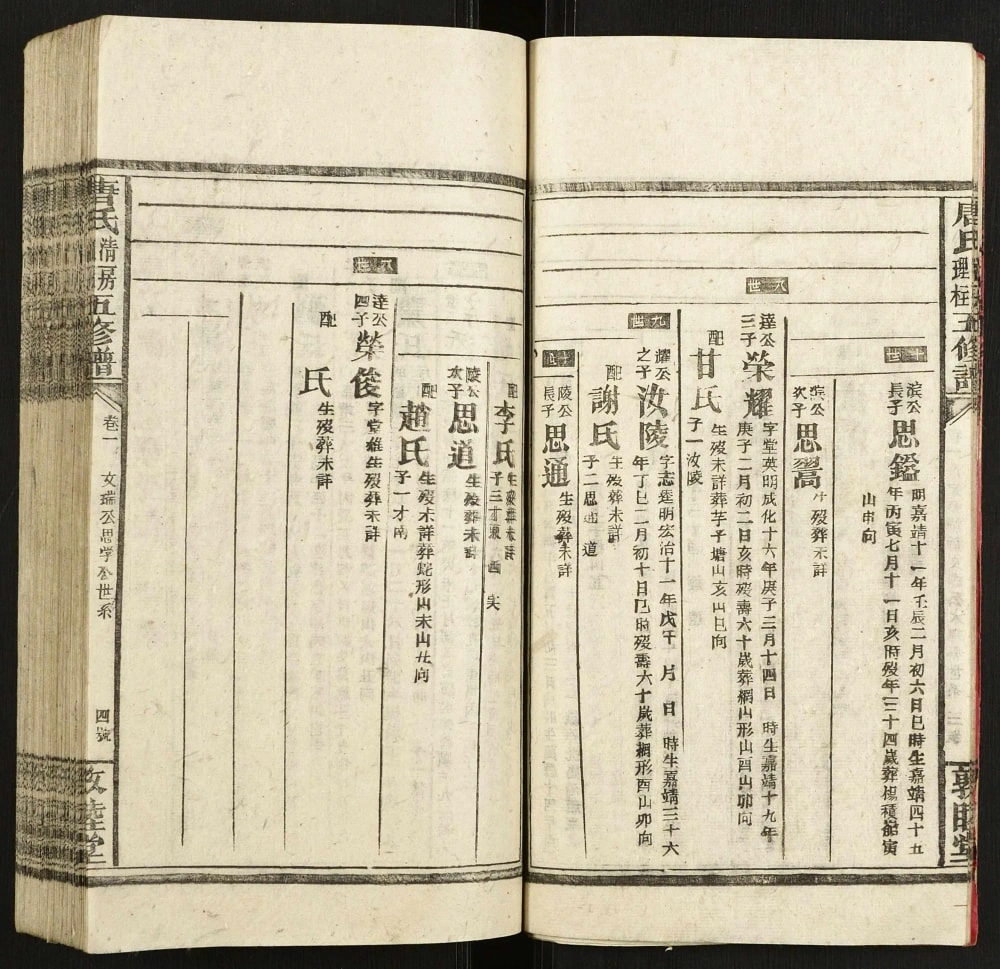 唐氏
五修譜
十世
滨公
長子
思鑑
明嘉靖十一年壬辰二月初六日巳時生嘉靖四十五
年丙寅七月十一日亥時殁年三十四歲葬楊積船寅
山申向
滨公
次子
思譽
生殁葬未詳
八世
達公
三子
榮耀
字堂英明成化十六年庚子三月十四日 時生嘉靖十九年
庚子二月初二日亥時殁壽六十歲葬網山形山酉山卯向
配
甘氏
生殁未詳葬芋子塘山亥山巳向
子一汝陵
九世
耀公
之子
汝陵
字志莲明宏治十一年戊午 月 日 時生嘉靖三十六
年丁巳二月初十日巳時殁壽六十歲葬網形酉山卯向
配
謝氏
生殁葬未詳
子二思通 道
十世
陵公
長子
思通
生殁葬未詳
配
李氏
生殁葬未詳
子三才 西 实
陵公
次子
思道
生殁葬未詳
配
趙氏
生殁未詳葬蛇形山未山 向
子一才南
八世
達公
四子
榮俊
字堂雄生殁葬未詳
配
氏
生殁葬未詳
唐氏清房五修譜
卷一
文瑞公思学公世系
四號
敦睦堂